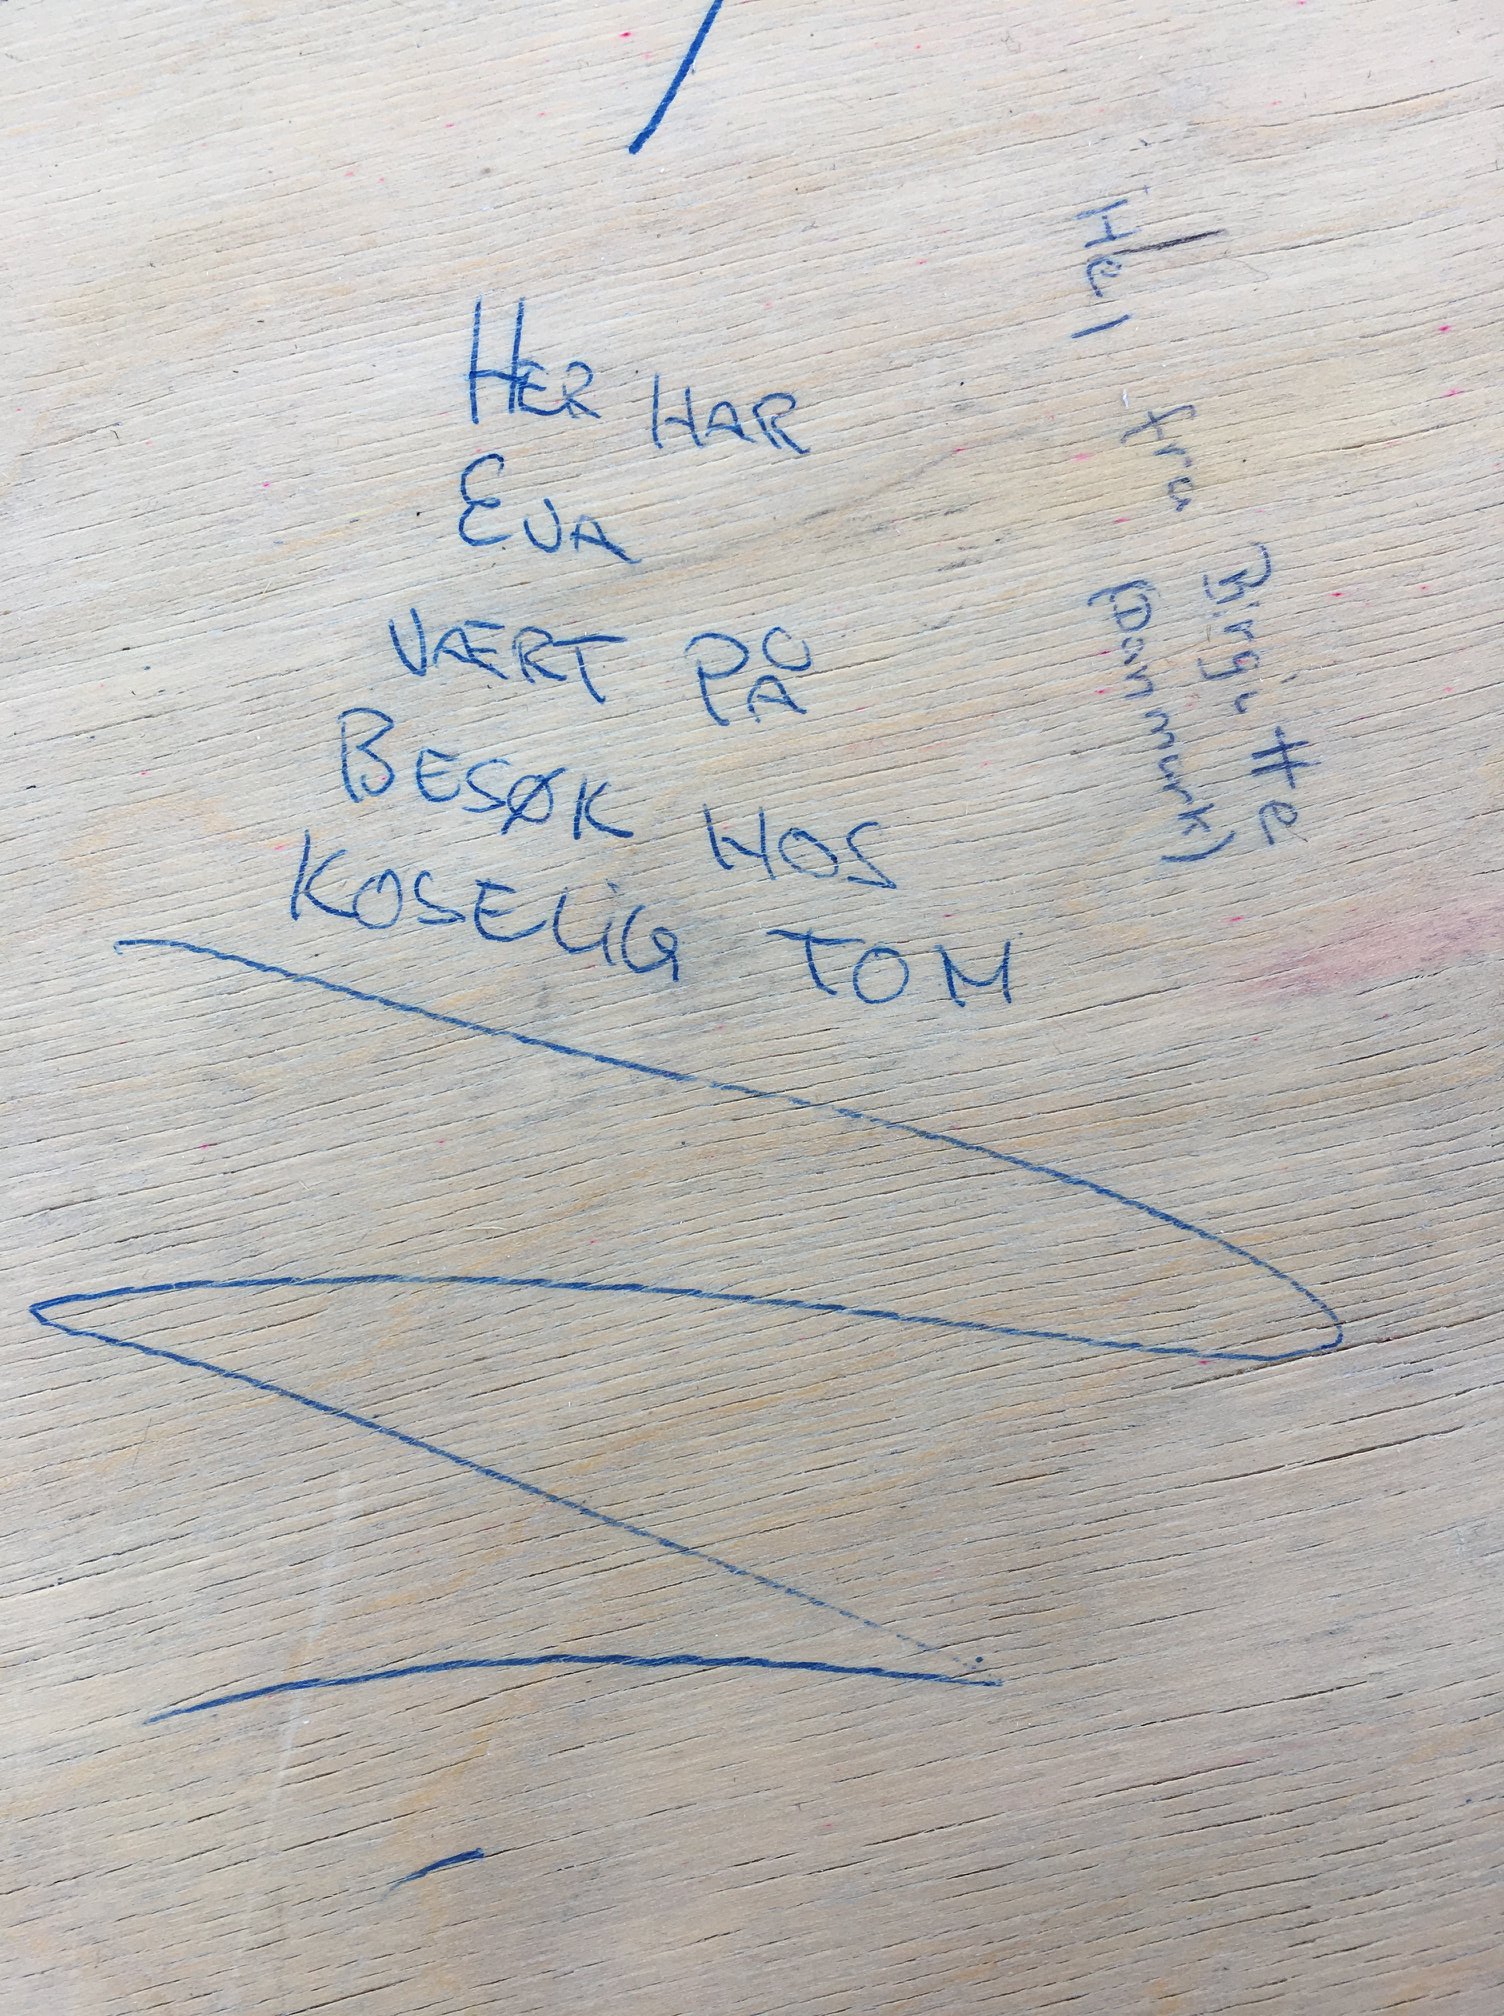 HER HAR
EVA
VÆRT PÅ
BESØK HOS
KOSELiG TOM
Hej fra
Birgitte
(Danmark)